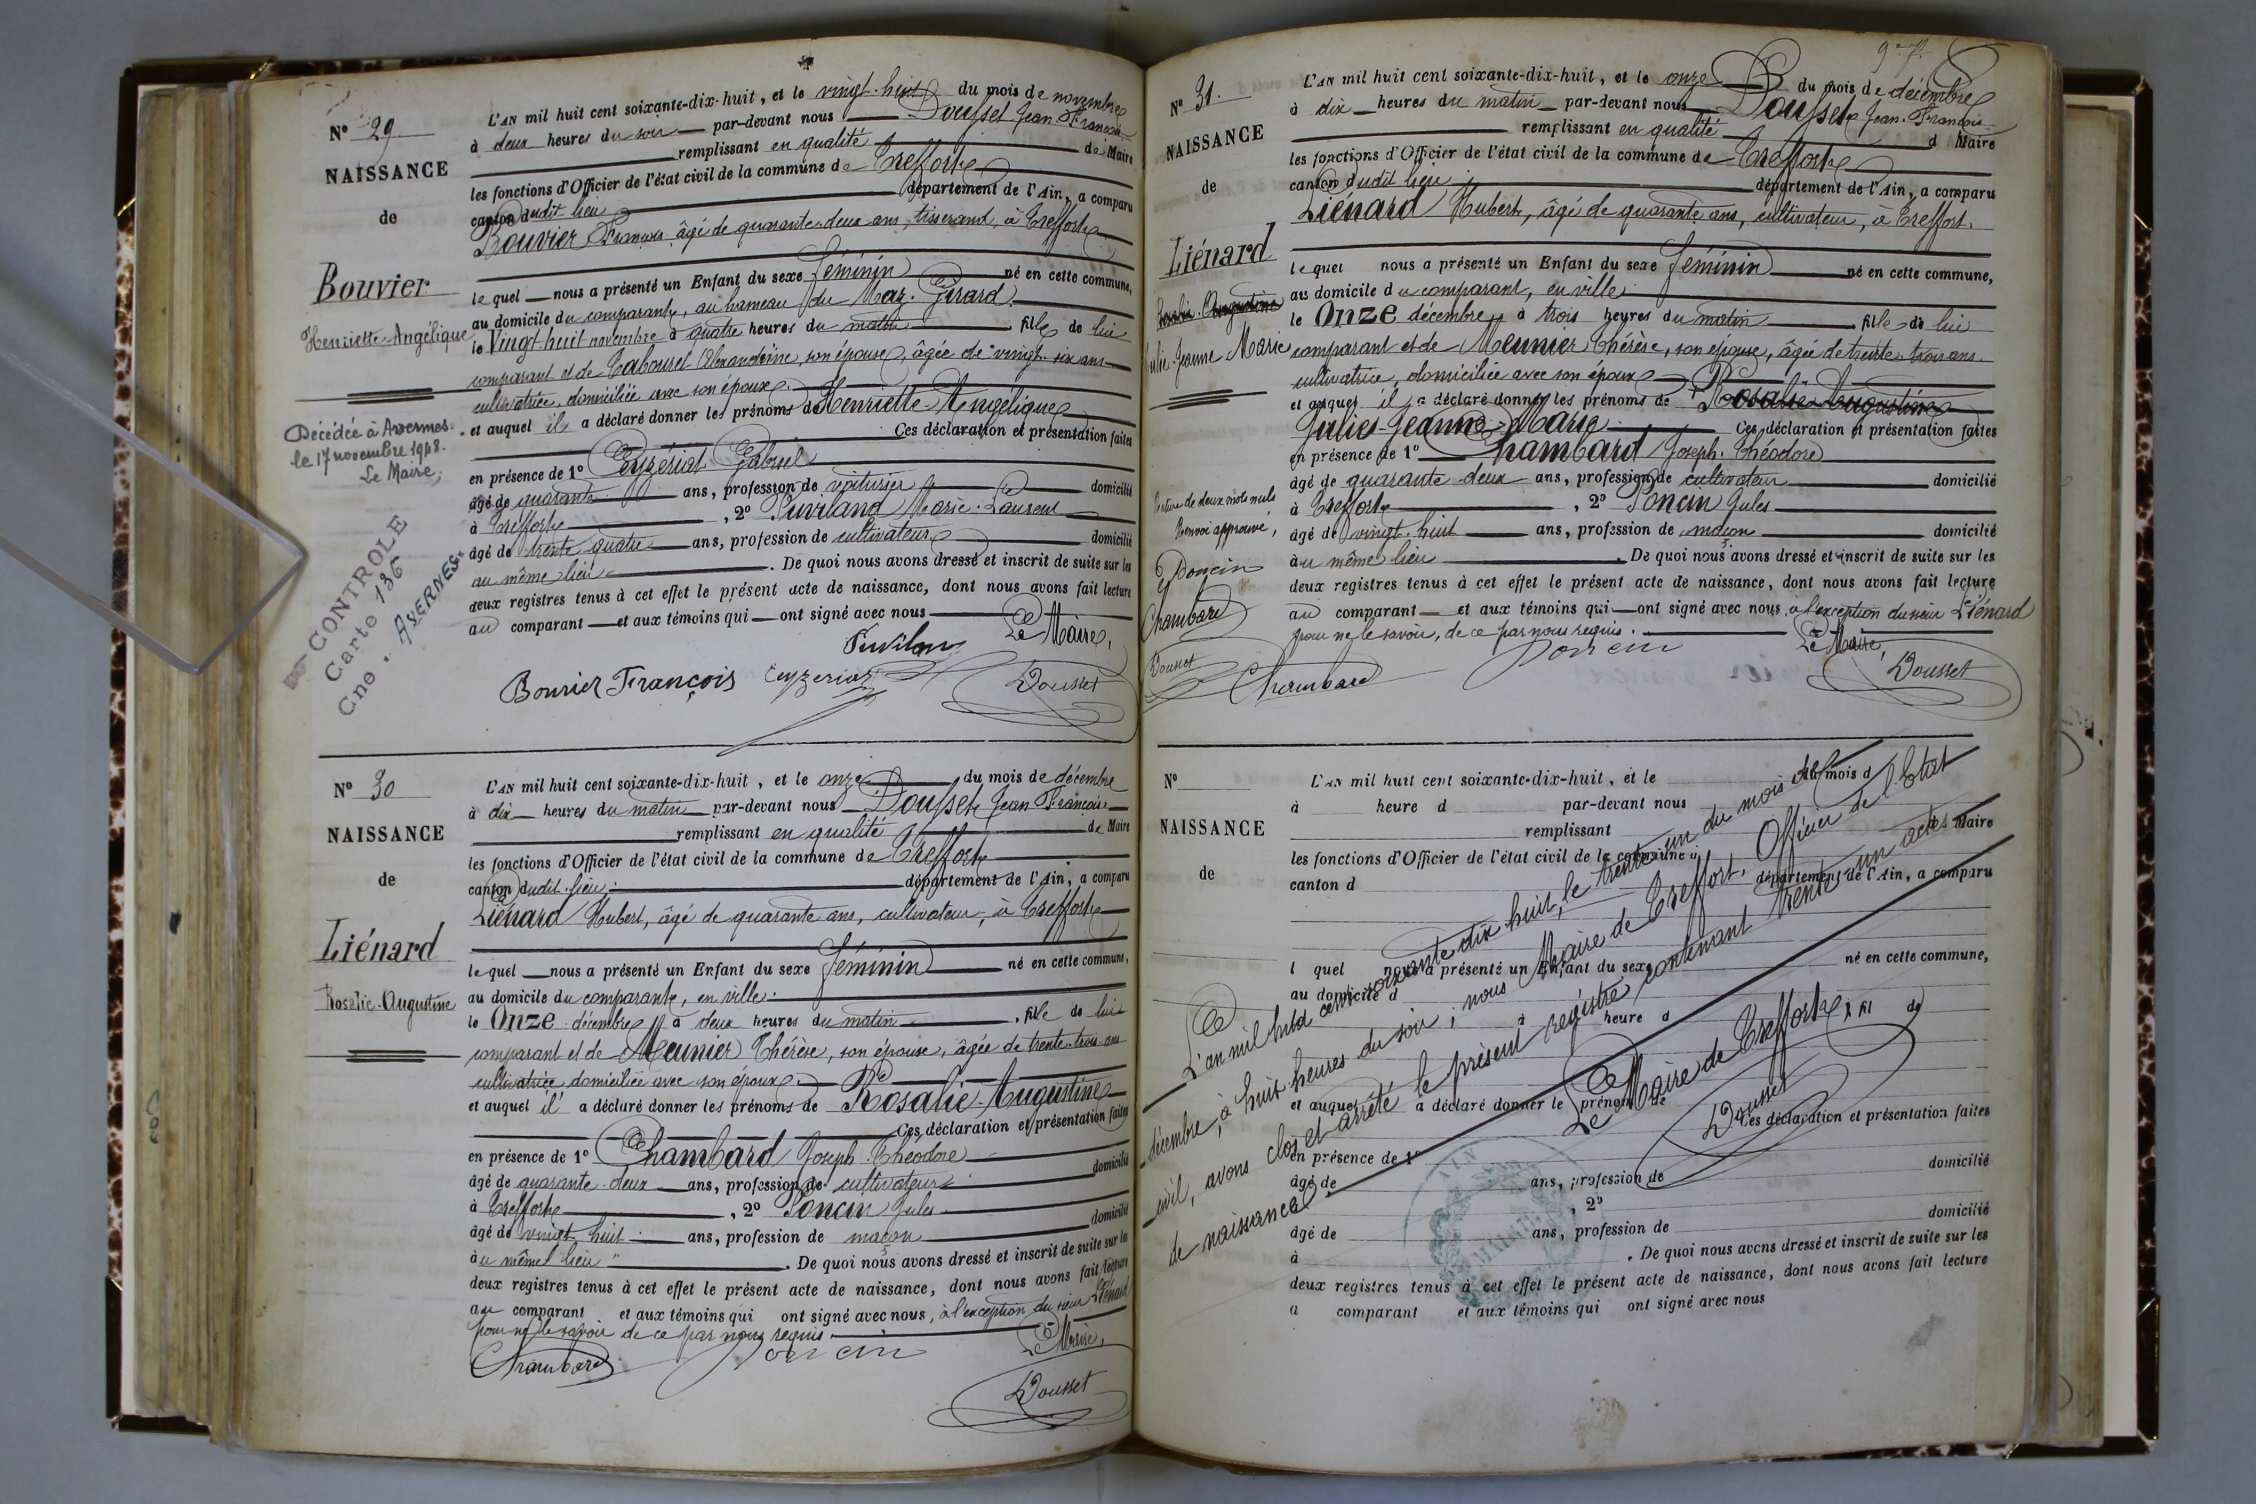 N° 29
NAISSANCE
de
Bouvier
Henriette-Angélique
Décédée à Avermes
le 17 novembre 1948.
Le Maire,
CONTROLE
Carte 136
Cne. AVERMES
L'AN mil huit cent soixante-dix-huit, et le vingt-huit du mois de novembre
à deux heures du soir par-devant nous Dousset Jean François
remplissant en qualité de Maire
les fonctions d'Officier de l'état civil de la commune de Treffort
canton dudit lieu département de l'Ain, a comparu
Bouvier François âgé de quarante-deux ans, tisserand, à Treffort
le quel nous a présenté un Enfant du sexe féminin né en cette commune,
au domicile du comparant, au hameau du Maz-Girard.
le Vingt huit novembre à quatre heures du matin fille de lui
comparant et de Tabouret Alexandrine, son épouse, âgée de vingt-six ans
cultivatrice, domiciliée avec son époux.
et auquel il a déclaré donner les prénoms de Henriette Angélique
Ces déclaration et présentation faites
en présence de 1° Ceyzériat Gabriel
âgé de quarante ans, profession de voiturier domicilié
à Treffort, 2° Puvilland Marie-Laurent
âgé de trente quatre ans, profession de cultivateur domicilié
au même lieu. De quoi nous avons dressé et inscrit de suite sur les
deux registres tenus à cet effet le présent acte de naissance, dont nous avons fait lecture
au comparant et aux témoins qui ont signé avec nous
Le Maire,
Bouvier François Ceyzeriat Dousset
N° 30
NAISSANCE
de
Liénard
Rosalie-Augustine
L'AN mil huit cent soixante-dix-huit, et le onze du mois de décembre
à dix heures du matin par-devant nous Dousset Jean François
remplissant en qualité de Maire
les fonctions d'Officier de l'état civil de la commune de Treffort
canton dudit lieu département de l'Ain, a comparu
Liénard Hubert, âgé de quarante ans, cultivateur, à Treffort
le quel nous a présenté un Enfant du sexe féminin né en cette commune,
au domicile du comparant, en ville
le Onze décembre à deux heures du matin, fille de lui
comparant et de Meunier Thérèse, son épouse, âgée de trente-trois ans
cultivatrice domiciliée avec son époux
et auquel il a déclaré donner les prénoms de Rosalie-Augustine
Ces déclaration et présentation faites
en présence de 1° Chambard Joseph-Théodore
âgé de quarante-deux ans, profession de cultivateur domicilié
à Treffort, 2° Poncin Jules
âgé de vingt-huit ans, profession de maçon domicilié
au même lieu. De quoi nous avons dressé et inscrit de suite sur les
deux registres tenus à cet effet le présent acte de naissance, dont nous avons fait lecture
au comparant et aux témoins qui ont signé avec nous, à l'exception du sieur Liénard
pour ne le savoir de ce par nous requis
Le Maire,
Chambard Poncin
Dousset
97
N° 31
NAISSANCE
de
Liénard
Rosalie-Augustine
Julie-Jeanne Marie
Rature de deux mots nuls
Renvoi approuvé,
Poncin
Chambard
Dousset
L'AN mil huit cent soixante-dix-huit, et le onze du mois de décembre
à dix heures du matin par-devant nous Dousset Jean-François
remplissant en qualité d Maire
les fonctions d'Officier de l'état civil de la commune de Treffort
canton dudit lieu département de l'Ain, a comparu
Liénard Hubert, âgé de quarante ans, cultivateur, à Treffort.
le quel nous a présenté un Enfant du sexe féminin né en cette commune,
au domicile du comparant, en ville
le Onze décembre à trois heures du matin, fille de lui
comparant et de Meunier Thérèse, son épouse, âgée de trente-trois ans
cultivatrice, domiciliée avec son époux
et auquel il a déclaré donner les prénoms de Rosalie-Augustine
Julie-Jeanne-Marie Ces déclaration et présentation faites
en présence de 1° Chambard Joseph-Théodore
âgé de quarante-deux ans, profession de cultivateur domicilié
à Treffort, 2° Poncin Jules
âgé de vingt-huit ans, profession de maçon domicilié
au même lieu. De quoi nous avons dressé et inscrit de suite sur les
deux registres tenus à cet effet le présent acte de naissance, dont nous avons fait lecture
au comparant et aux témoins qui ont signé avec nous à l'exception du sieur Liénard
pour ne le savoir, de ce par nous requis.
Le Maire,
Chambard Poncin Dousset
N°
NAISSANCE
de
L'AN mil huit cent soixante-dix-huit, et le du mois d
à heure d par-devant nous
remplissant d Maire
les fonctions d'Officier de l'état civil de la commune d
canton d département de l'Ain, a comparu
l quel nous a présenté un Enfant du sexe né en cette commune,
au domicile d
à heure d fil de
et auquel a déclaré donner le prénom de
Ces déclaration et présentation faites
en présence de 1°
âgé de ans, profession de domicilié
, 2°
âgé de ans, profession de domicilié
à . De quoi nous avons dressé et inscrit de suite sur les
deux registres tenus à cet effet le présent acte de naissance, dont nous avons fait lecture
a comparant et aux témoins qui ont signé avec nous
L'an mil huit cent soixante dix huit, le trente un du mois de
décembre, à huit heures du soir; nous Maire de Treffort, Officier de l'Etat
civil, avons clos et arrêté le présent registre contenant trente un actes
de naissance
Le Maire de Treffort
Dousset
AIN
MAIRIE